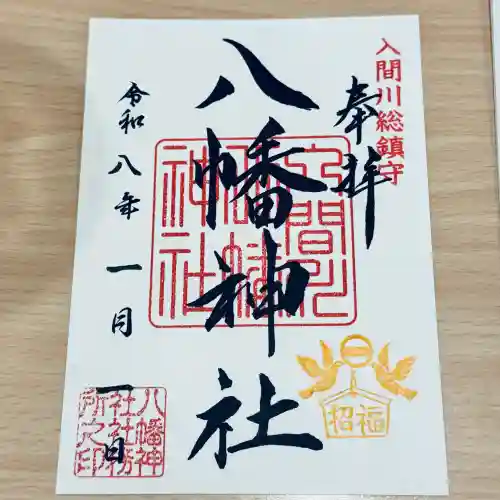 入間川総鎮守
奉拝
八幡神社
入間川
八幡
神社
令和八年一月一日
招福
八幡神
社社務
所之印